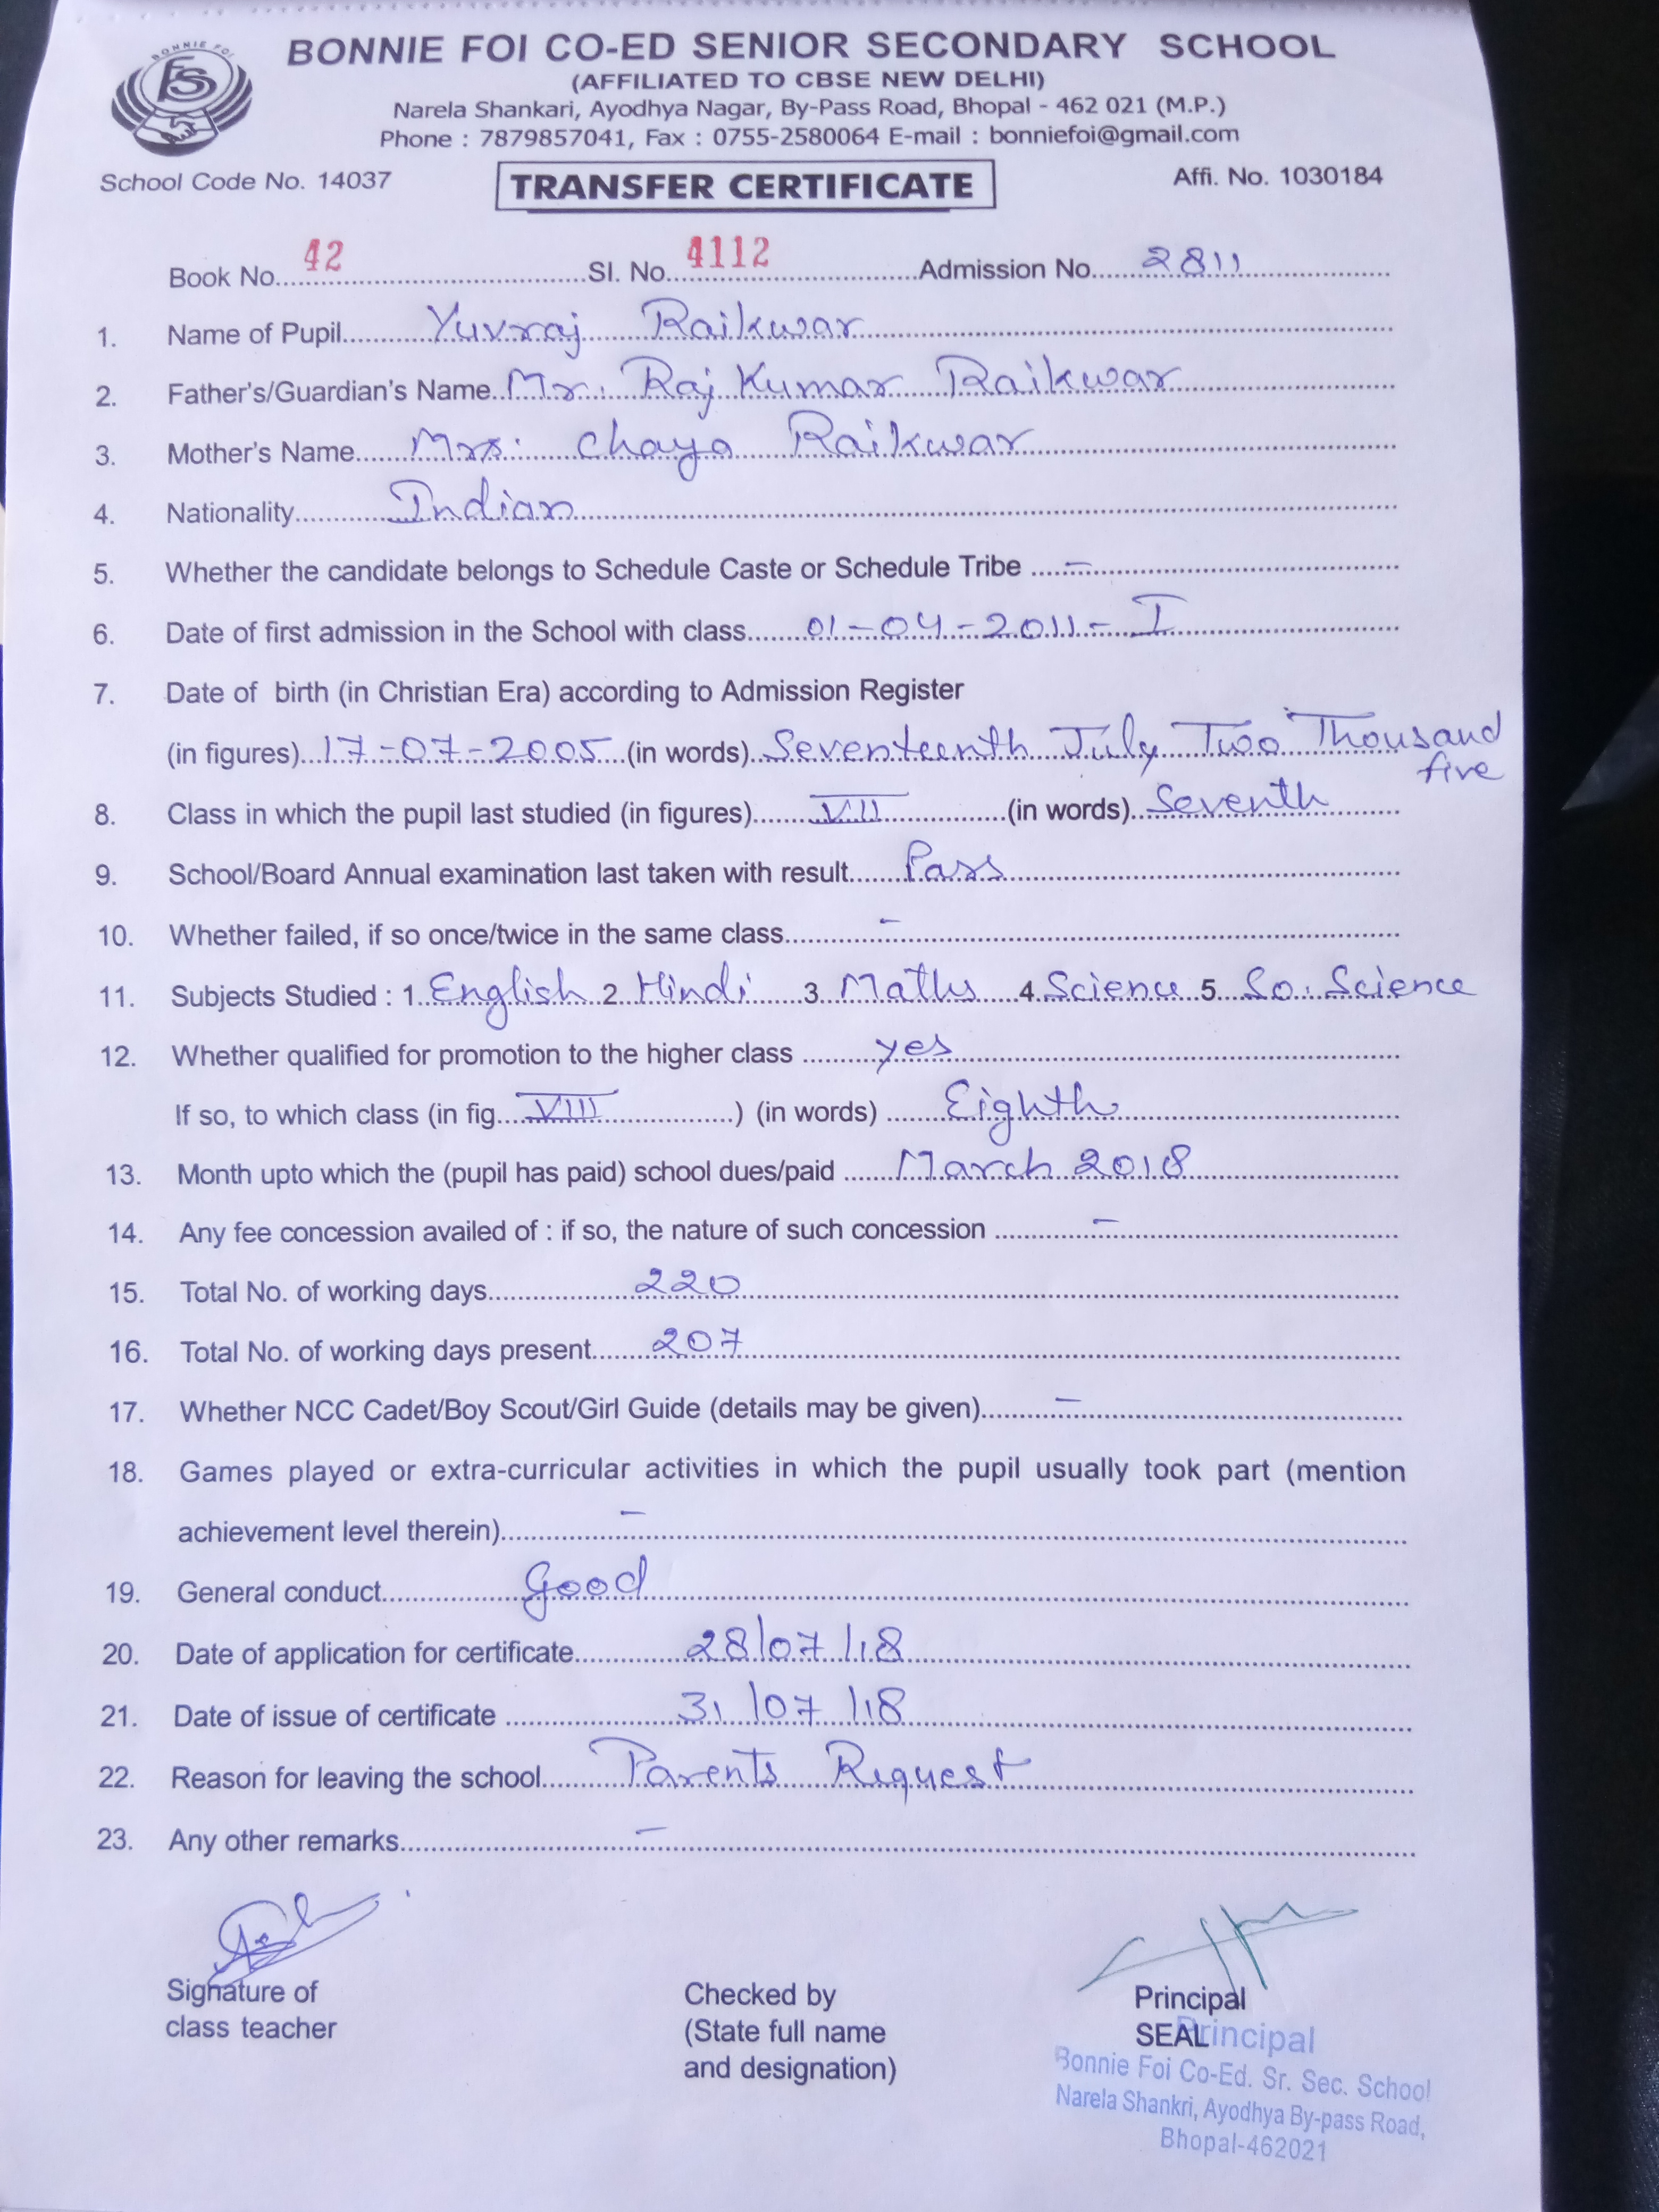 BONNIE FOI
FS
BONNIE FOI CO-ED SENIOR SECONDARY SCHOOL
(AFFILIATED TO CBSE NEW DELHI)
Narela Shankari, Ayodhya Nagar, By-Pass Road, Bhopal - 462 021 (M.P.)
Phone : 7879857041, Fax : 0755-2580064 E-mail : bonniefoi@gmail.com
School Code No. 14037 TRANSFER CERTIFICATE Affi. No. 1030184
Book No. 42 Sl. No. 4112 Admission No. 2811
1. Name of Pupil Yuvraj Raikwar
2. Father's/Guardian's Name Mr. Raj Kumar Raikwar
3. Mother's Name Mrs. Chaya Raikwar
4. Nationality Indian
5. Whether the candidate belongs to Schedule Caste or Schedule Tribe –
6. Date of first admission in the School with class 01-04-2011- I
7. Date of birth (in Christian Era) according to Admission Register
(in figures) 17-07-2005 (in words) Seventeenth July Two Thousand
five
8. Class in which the pupil last studied (in figures) VII (in words) Seventh
9. School/Board Annual examination last taken with result Pass
10. Whether failed, if so once/twice in the same class –
11. Subjects Studied : 1. English 2. Hindi 3. Maths 4. Science 5. So. Science
12. Whether qualified for promotion to the higher class yes
If so, to which class (in fig. VIII ) (in words) Eighth
13. Month upto which the (pupil has paid) school dues/paid March 2018
14. Any fee concession availed of : if so, the nature of such concession –
15. Total No. of working days 220
16. Total No. of working days present 207
17. Whether NCC Cadet/Boy Scout/Girl Guide (details may be given) –
18. Games played or extra-curricular activities in which the pupil usually took part (mention
achievement level therein) –
19. General conduct Good
20. Date of application for certificate 28/07/18
21. Date of issue of certificate 31/07/18
22. Reason for leaving the school Parents Request
23. Any other remarks –
Signature of
class teacher
Checked by
(State full name
and designation)
Principal
SEAL
Principal
Bonnie Foi Co-Ed. Sr. Sec. School
Narela Shankri, Ayodhya By-pass Road,
Bhopal-462021